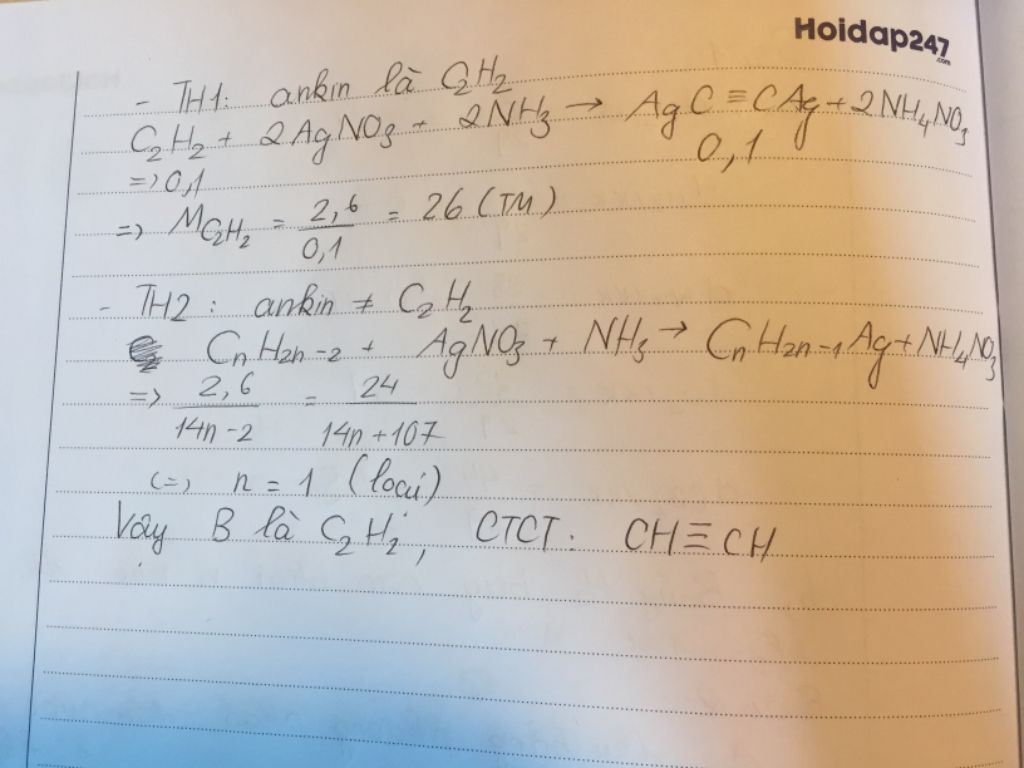 Hoidap247
.com
- TH1: ankin là C2H2
C2H2 + 2AgNO3 + 2NH3 → AgC≡CAg + 2NH4NO3
0,1
=> 0,1
=> MC2H2 = 2,6/0,1 = 26 (TM)
- TH2: ankin ≠ C2H2
CnH2n-2 + AgNO3 + NH3 → CnH2n-1Ag + NH4NO3
=> 2,6/14n-2 = 24/14n+107
(=) n = 1 (loại)
Vậy B là C2H2, CTCT: CH≡CH